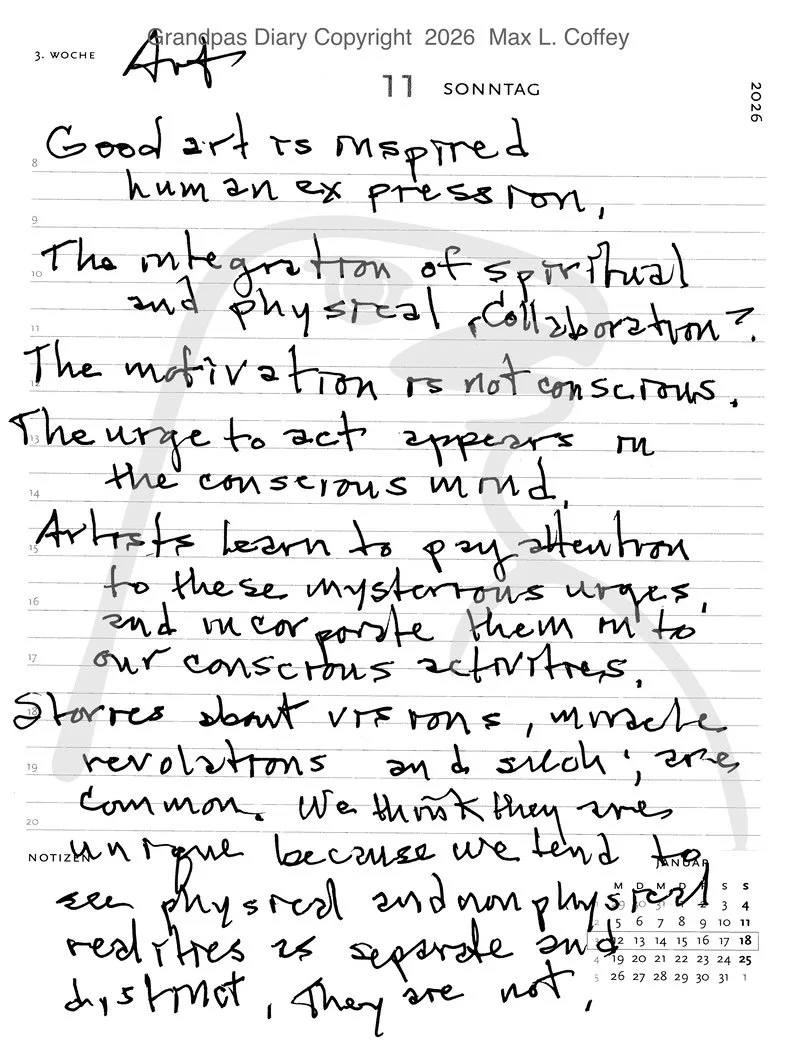 Grandpas Diary Copyright 2026 Max L. Coffey
3. WOCHE
Art
11 SONNTAG
2026
Good art is inspired
8
human expression.
9
The integration of spiritual
10
and physical collaboration?
11
The motivation is not conscious.
12
The urge to act appears in
13
the conscious mind.
14
Artists learn to pay attention
15
to these mysterious urges,
16
and incorporate them into
17
our conscious activities.
Stories about visions, miracle
18
revolations and such, are
19
common. We think they are
20
unique because we tend to
NOTIZEN
see physical and nonphysical
realities as separate and
distinct, They are not.
JANUAR
M D M D F S S
2 3 4
5 6 7 8 9 10 11
3 12 13 14 15 16 17 18
4 19 20 21 22 23 24 25
5 26 27 28 29 30 31 1